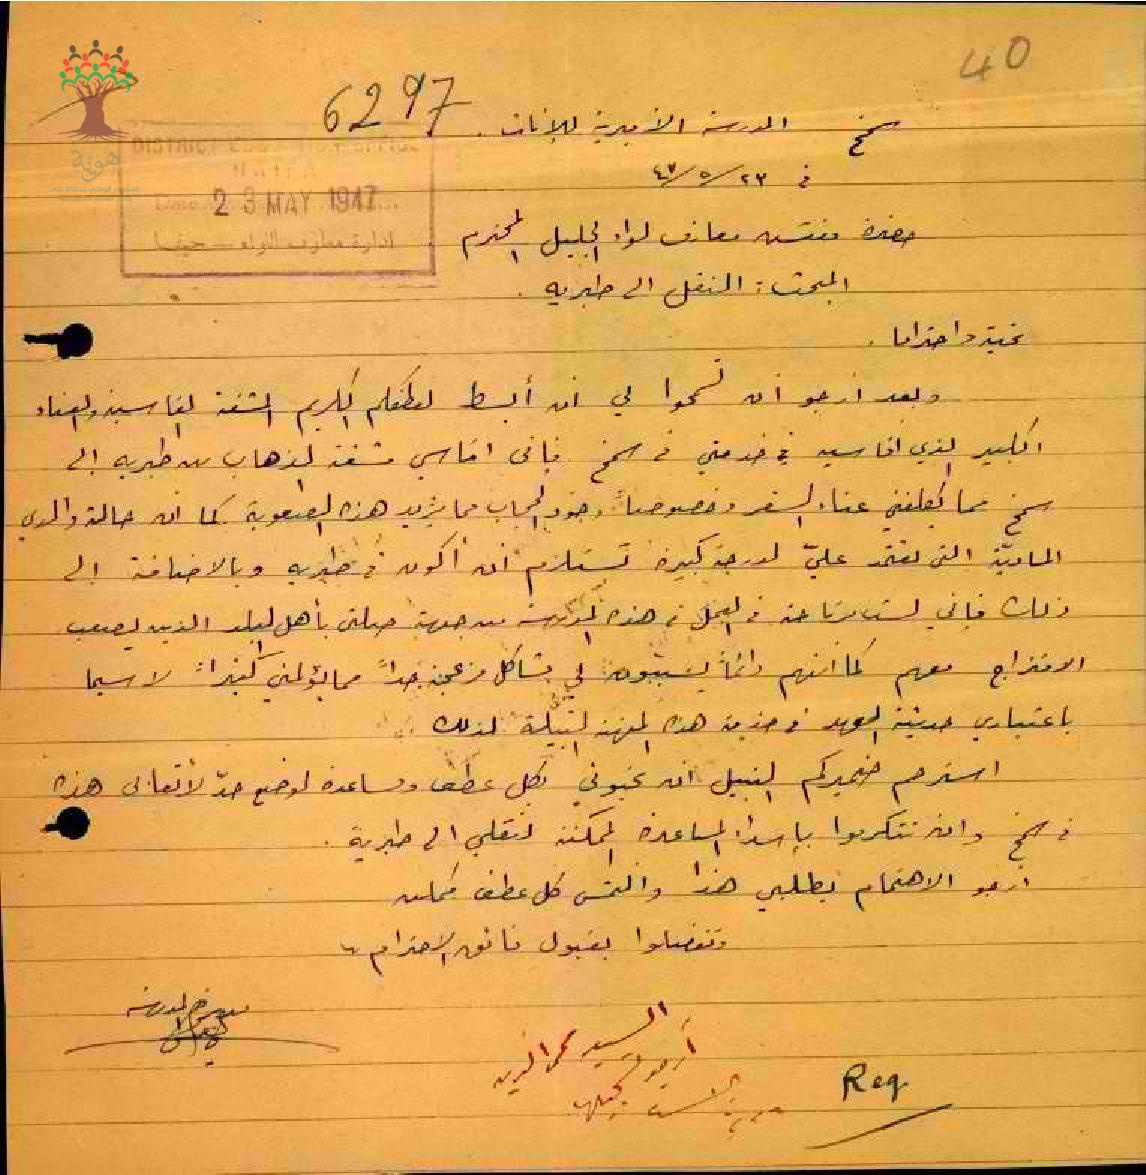 40
6297
سمخ المدرسة الأميرية للإناث .
في ٢٣/٥/٤٧
DISTRICT EDUCATION OFFICE
HAIFA
Date... 23 MAY 1947 ...
ادارة معارف اللواء — حيفا
هوية
حضرة مفتش معارف لواء الجليل المحترم
المبحث : النقل الى طبريه .
تحية واحتراما .
وبعد ارجو ان تسمحوا لي ان أبسط لعطفكم الكريم المشقة القاسية والعناء
الكبير الذي اقاسيه في خدمتي في سمخ فإني اقاسي مشقة الذهاب من طبريه الى
سمخ مما يكلفني عناء السفر وخصوصاً وجود الحجاب مما يزيد هذه الصعوبة كما ان حالة والدي
الماديّة التي تعتمد عليّ لدرجة كبيرة تستلزم أن أكون في طبريه وبالاضافة الى
ذلك فإني لست مرتاحة في العمل في هذه المدرسة من جهة صلتي بأهل البلد الذين يصعب
الامتزاج معهم كما أنهم دائماً يسببون لي مشاكل مزعجة جداً مما يؤلمني كثيراً لا سيما
باعتباري حديثة العهد في خدمة هذه المهنة النبيلة لذلك
استرحم ضميركم النبيل ان تحبوني بكل عطف ومساعدة لوضع حدّ لأتعابي هذه
في سمخ وان تتكرموا بإسداء المساعدة الممكنة لنقلي الى طبرية .
ارجو الاهتمام بطلبي هذا والتمس كل عطف ممكن
وتفضلوا بقبول فائق الاحترام ،
المدرسة
السيد
أرجو
Req